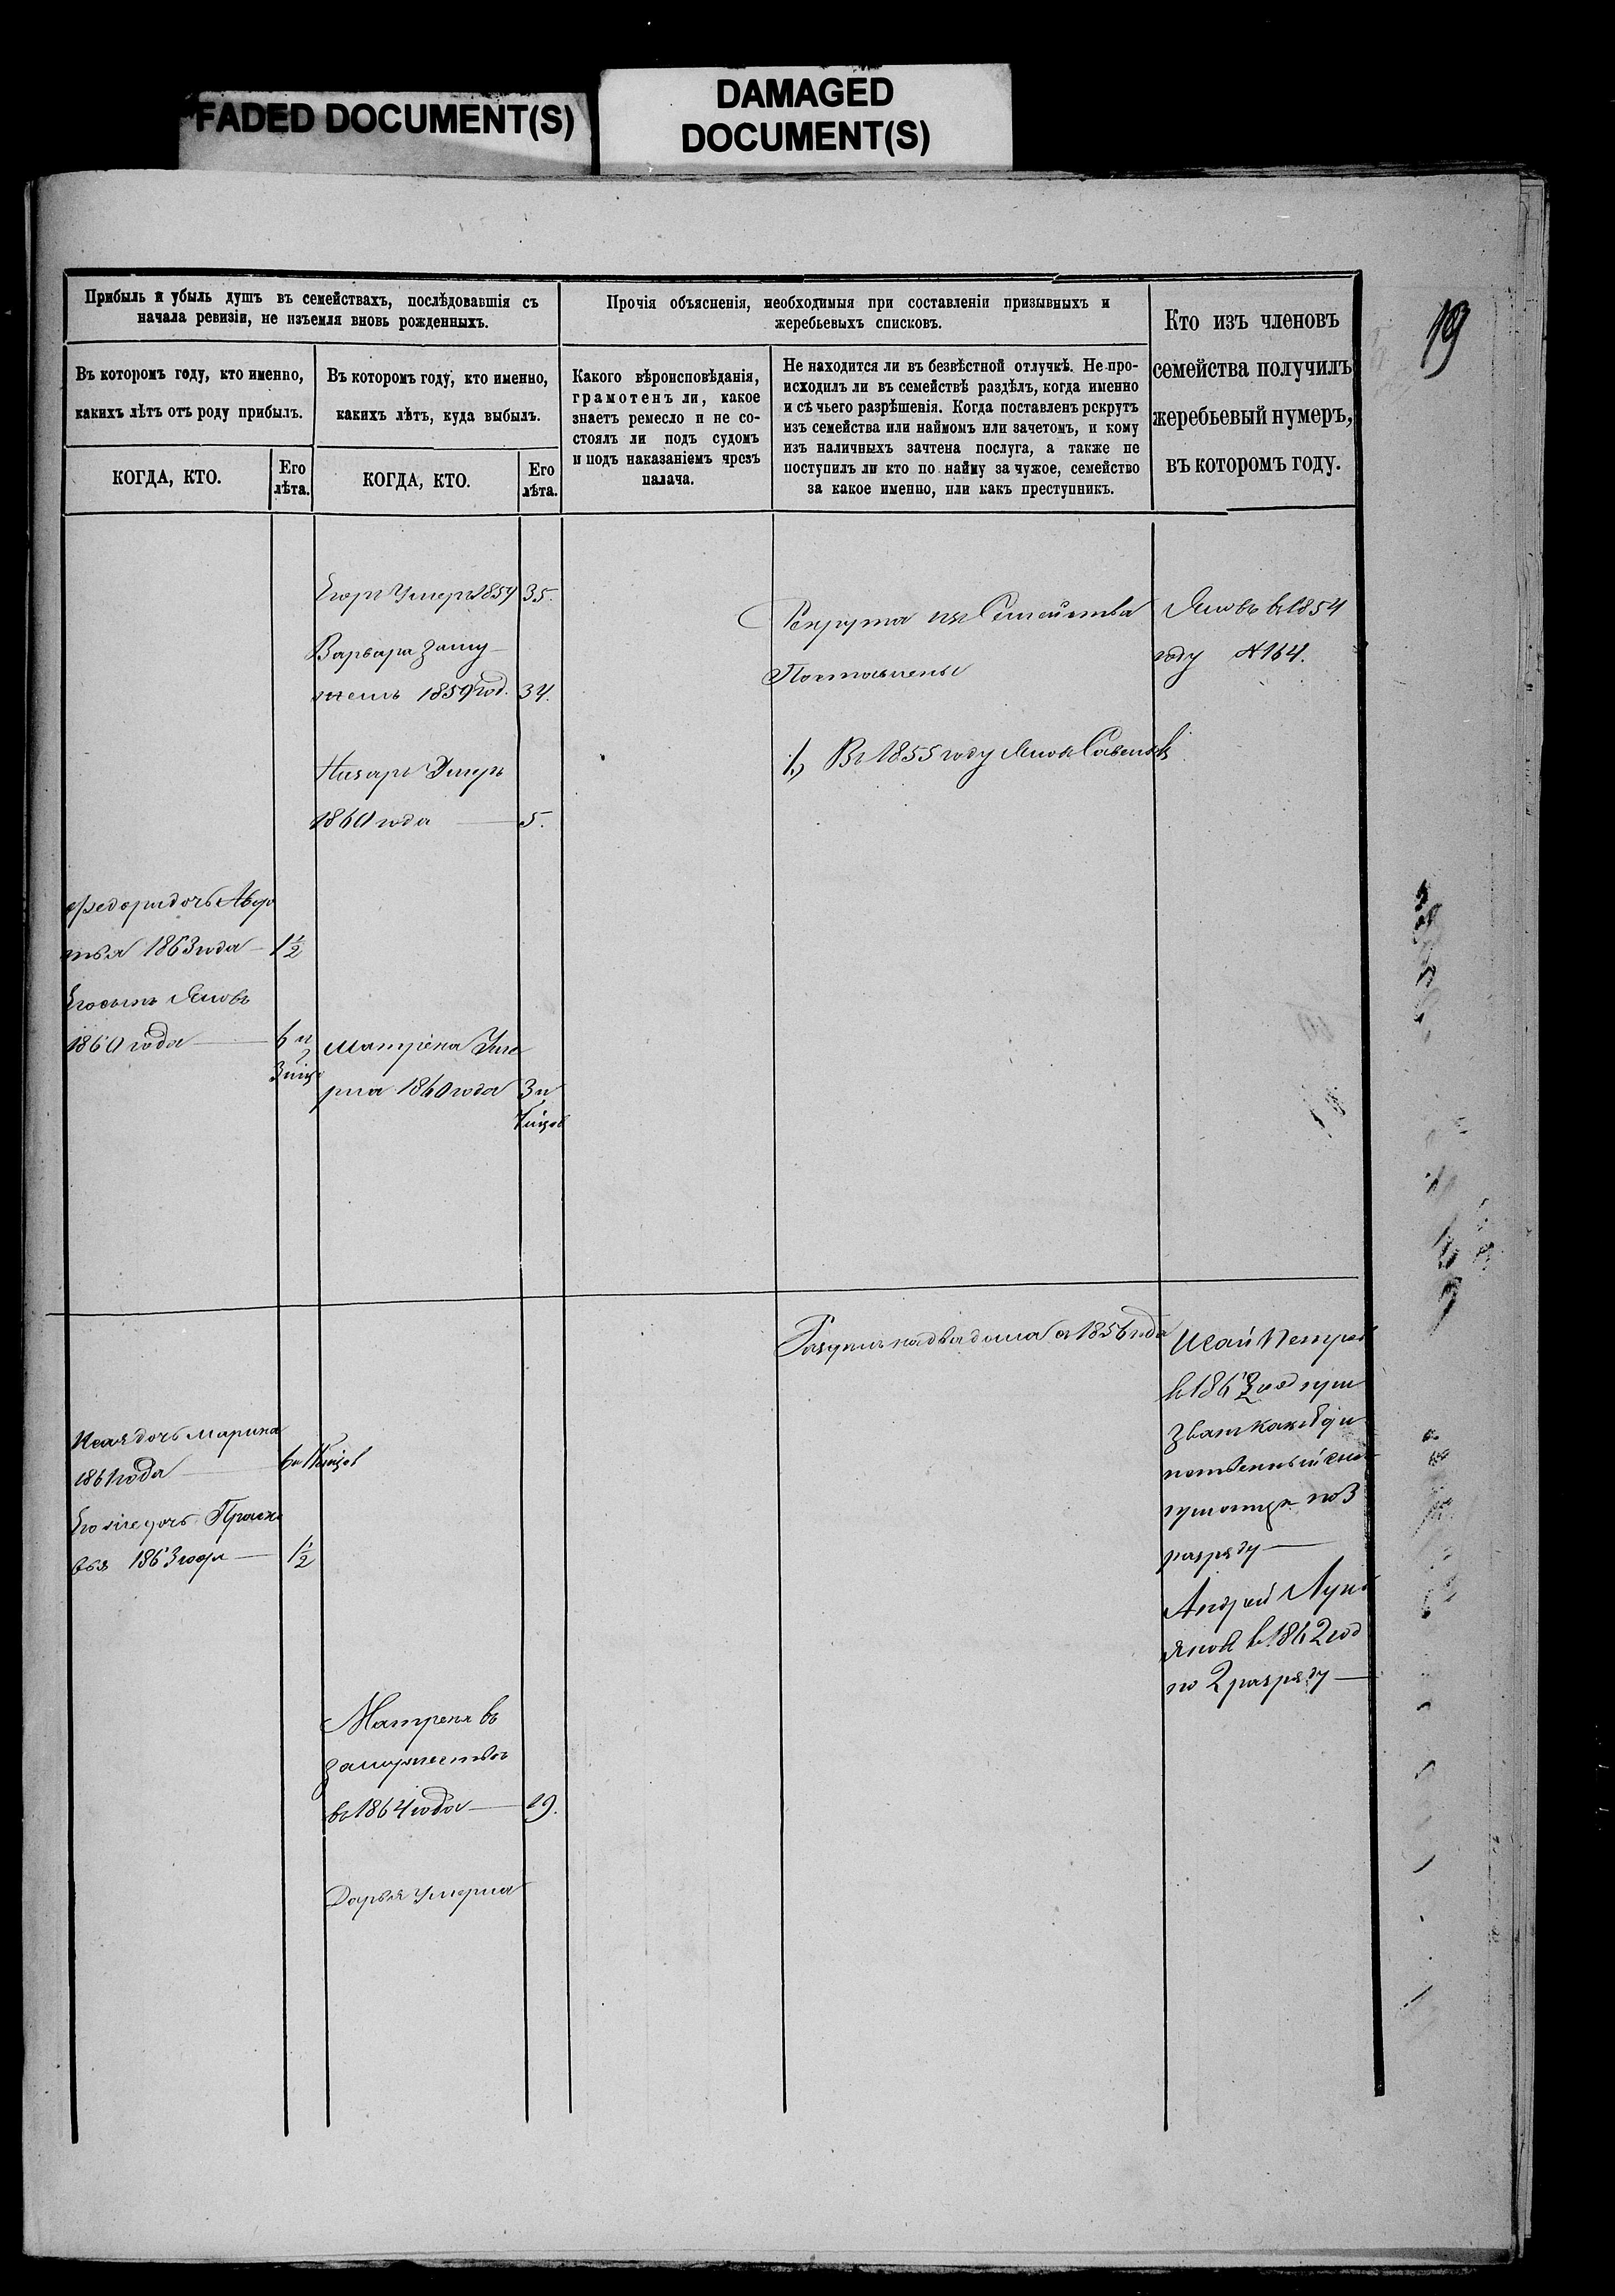 FADED DOCUMENT(S)
DAMAGED
DOCUMENT(S)
19
Прибыль и убыль душъ въ семействахъ, послѣдовавшія съ
начала ревизіи, не изъемля вновь рожденныхъ.
Въ которомъ году, кто именно,
какихъ лѣтъ отъ роду прибылъ.
КОГДА, КТО.
Его
лѣта.
Въ которомъ году, кто именно,
какихъ лѣтъ, куда выбылъ.
КОГДА, КТО.
Его
лѣта.
Прочія объясненія, необходимыя при составленіи призывныхъ и
жеребьевыхъ списковъ.
Какого вѣроисповѣданія,
грамотенъ ли, какое
знаетъ ремесло и не со-
стоялъ ли подъ судомъ
и подъ наказаніемъ чрезъ
палача.
Не находится ли въ безвѣстной отлучкѣ. Не про-
исходилъ ли въ семействѣ раздѣлъ, когда именно
и съ чьего разрѣшенія. Когда поставленъ рекрутъ
изъ семейства или наймомъ или зачетомъ, и кому
изъ наличныхъ зачтена послуга, а также не
поступилъ ли кто по найму за чужое, семейство
за какое именно, или какъ преступникъ.
Кто изъ членовъ
семейства получилъ
жеребьевый нумеръ,
въ которомъ году.
Егоръ Умеръ 1854 35.
Варвара заму-
жемъ 1859 год. 34.
Назаръ Умеръ
1860 года 5.
Рекрута изъ Семейства
Поставлены
1., Въ 1855 году Яковъ Савельев
Яковъ в 1854
году № 164.
Федора дочь Авдо
тья 1863 года 1½
Его сынъ Яковъ
1860 года 6 и
Матрена Уме
рла 1860 года 3 и
на два дома с 1856 года
Исай Петров
в 1863 год
зван какъ
по 3
разряду
Андрей Лукь
янов в 1862 год
по 2 разряду
Исая дочь Марина
1861 года
Его же дочь Праско
вья 1863 года 1½
Матрена въ
замужество
въ 1864 года 19.
Дарья Умерла